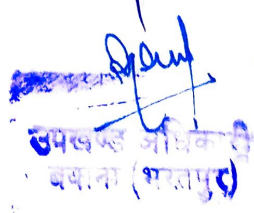 उपखण्ड अधिकारी
बयाना (भरतपुर)